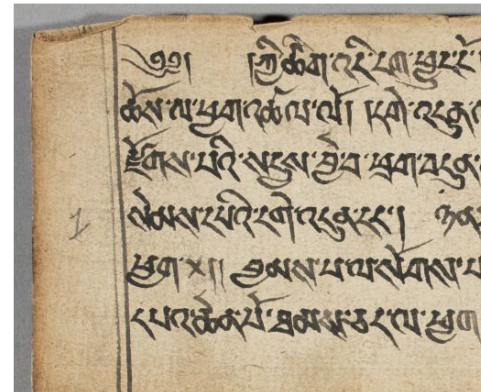 ༄༅། །ཀྱི་ཚིག་འདི་དག་
ཆོས་ལ་ཕྱག་འཚལ་ལོ། །དགེ་འདུན་
རྫོགས་པའི་སངས་རྒྱས་བྱེ་བ་ཕྲག་བདུན་
1 སེམས་དཔའི་དགེ་འདུན་དང་། ཉན་
ཕྱག་ །། བྱམས་པ་ལ་སོགས་པ
དཔའ་ཆེན་པོ་ཐམས་ཅད་ལ་ཕྱག